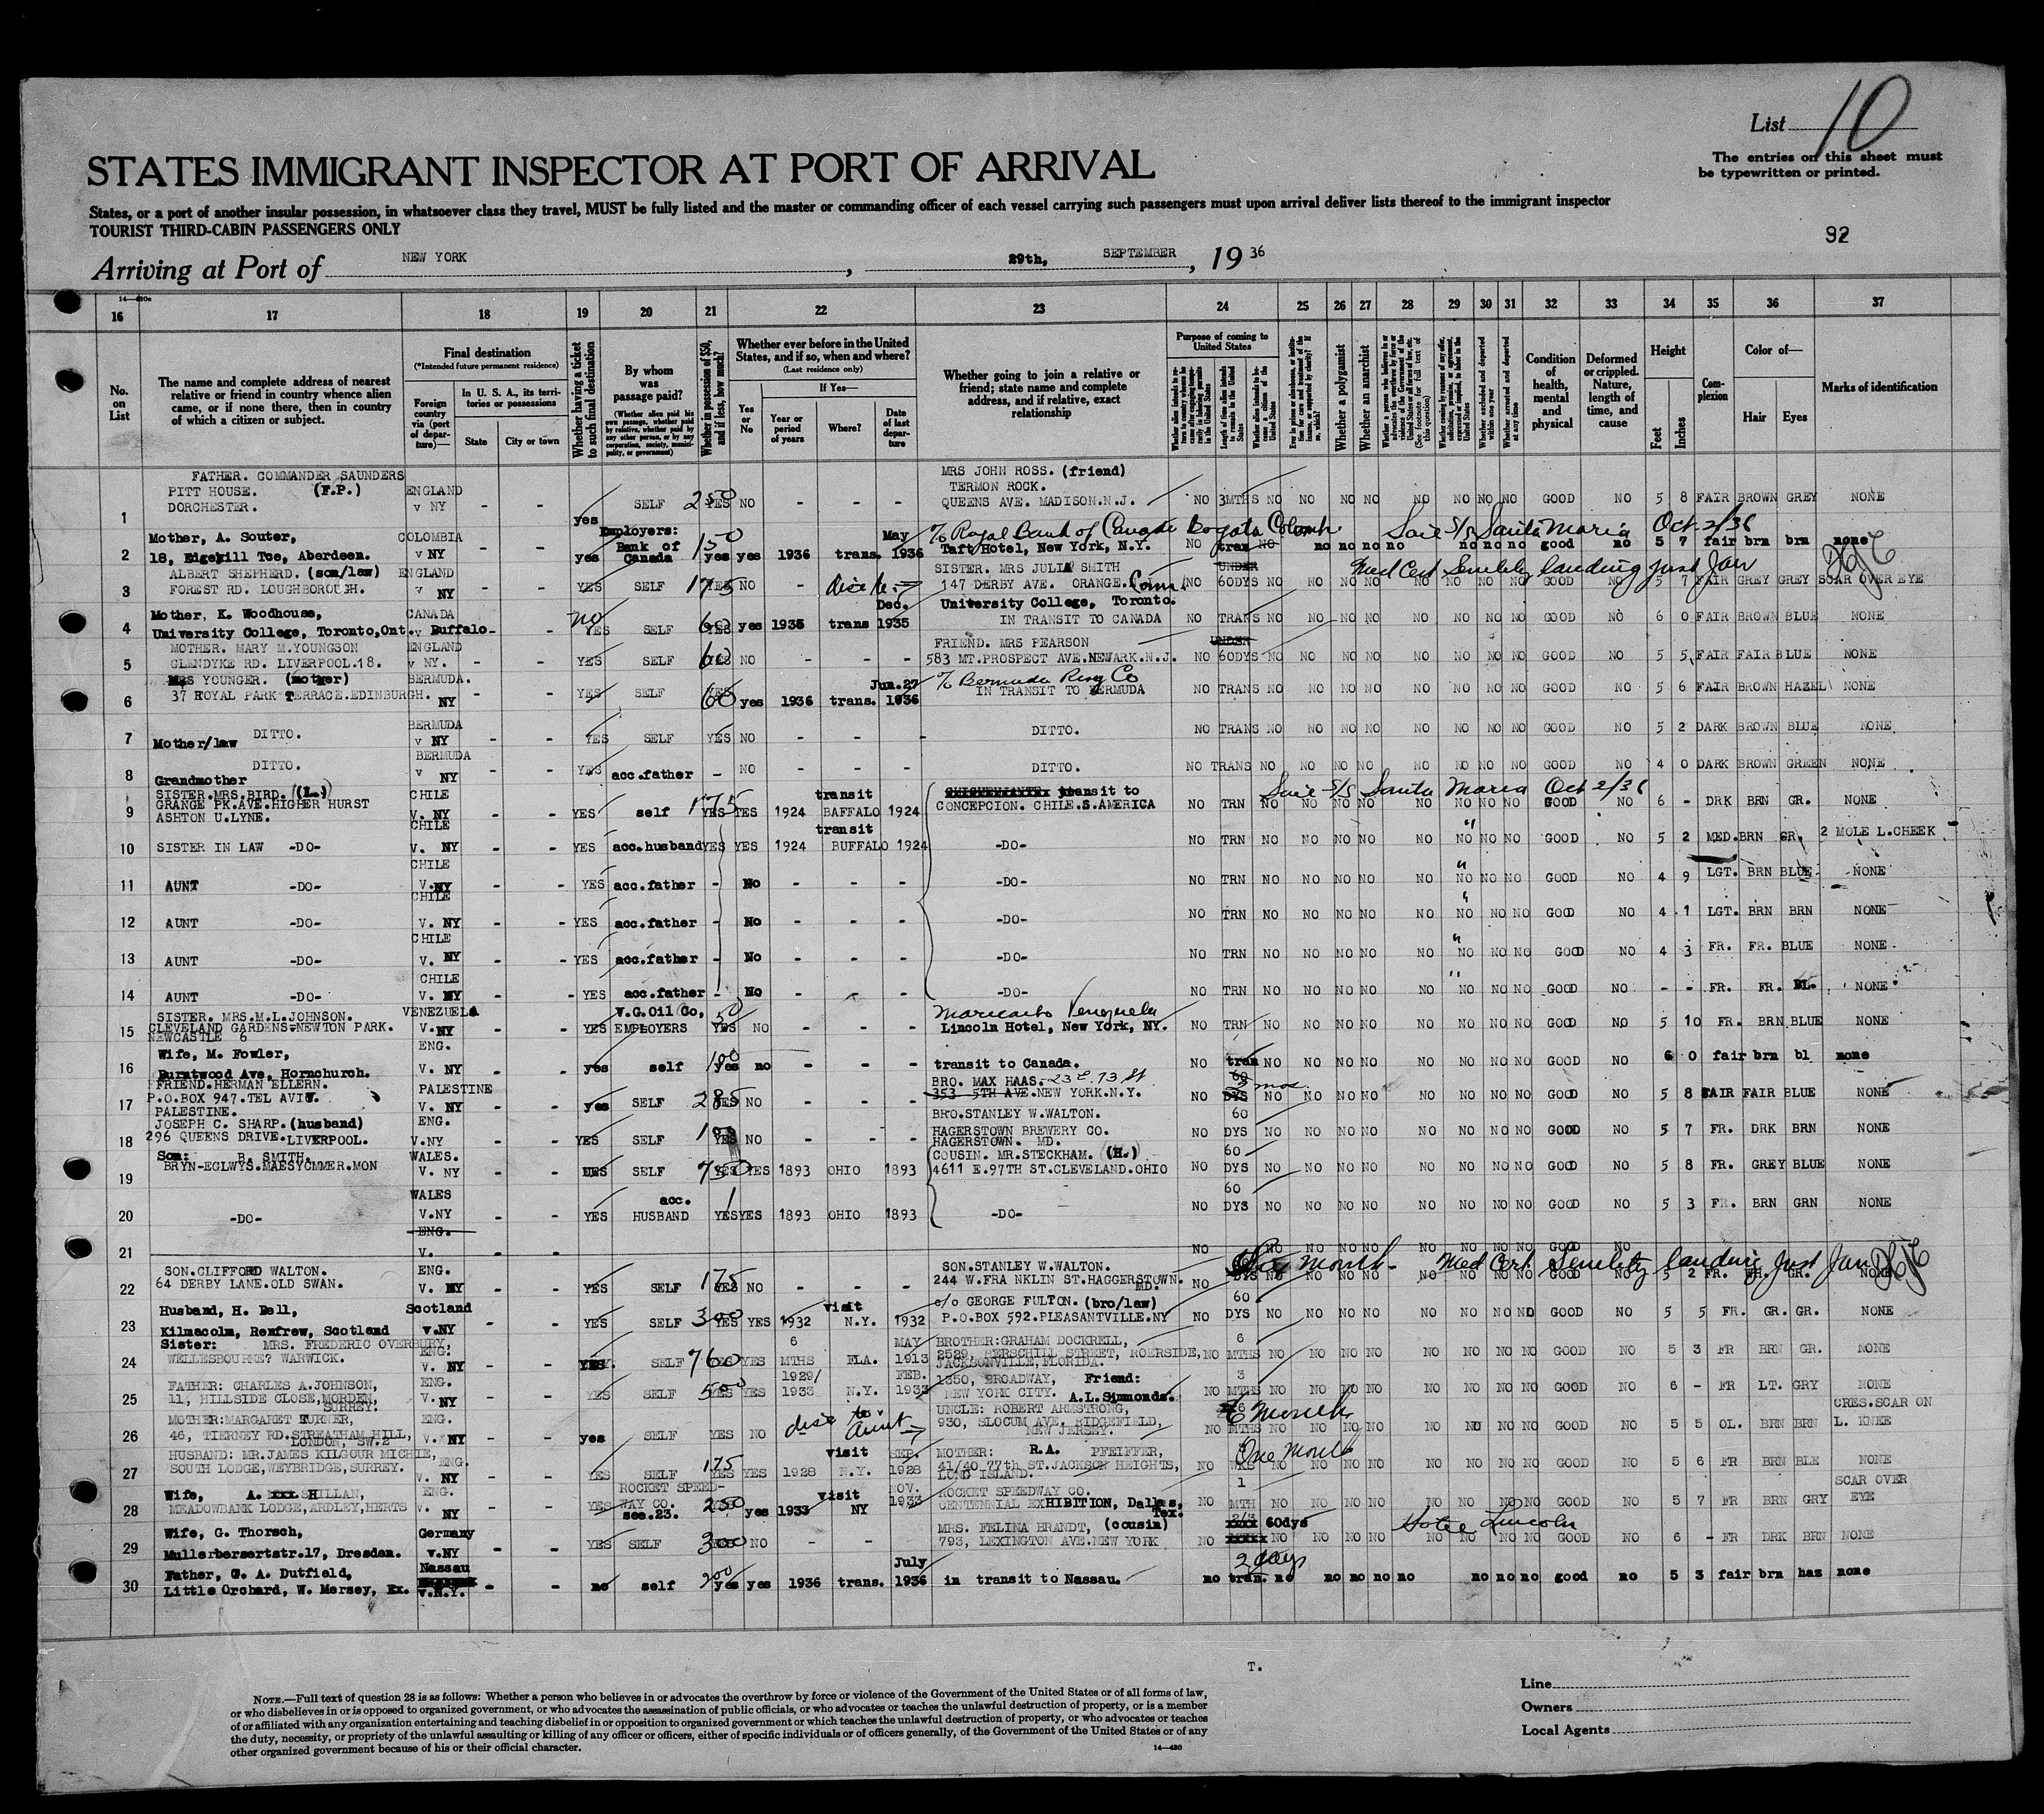 List 10
STATES IMMIGRANT INSPECTOR AT PORT OF ARRIVAL
The entries on this sheet must
be typewritten or printed.
States, or a port of another insular possession, in whatsoever class they travel, MUST be fully listed and the master or commanding officer of each vessel carrying such passengers must upon arrival deliver lists thereof to the immigrant inspector
TOURIST THIRD-CABIN PASSENGERS ONLY
92
Arriving at Port of NEW YORK, 29th, SEPTEMBER, 19 36
16 17 18 19 20 21 22 23 24 25 26 27 28 29 30 31 32 33 34 35 36 37
No. on List
The name and complete address of nearest relative or friend in country whence alien came, or if none there, then in country of which a citizen or subject.
Final destination
(*Intended future permanent residence)
Foreign country via (port of departure)—
In U. S. A., its territories or possessions
State City or town
Whether having a ticket to such final destination
By whom was passage paid?
(Whether alien paid his own passage, whether paid by relative, whether paid by any other person, or by any corporation, society, municipality, or government)
Whether in possession of $50, and if less, how much?
Whether ever before in the United States, and if so, when and where?
(Last residence only)
Yes or No
If Yes—
Year or period of years Where? Date of last departure
Whether going to join a relative or friend; state name and complete address, and if relative, exact relationship
Purpose of coming to United States
Length of time alien intends to remain in the United States
Whether a polygamist
Whether an anarchist
Condition of health, mental and physical
Deformed or crippled. Nature, length of time, and cause
Height Feet Inches
Complexion
Color of— Hair Eyes
Marks of identification
1 FATHER. COMMANDER SAUNDERS PITT HOUSE. (F.P.) DORCHESTER. ENGLAND v NY - - yes SELF 250 YES NO - - - MRS JOHN ROSS. (friend) TERMON ROCK. QUEENS AVE. MADISON.N.J. NO 3MTHS NO NO NO NO NO NO NO NO GOOD NO 5 8 FAIR BROWN GREY NONE
2 Mother, A. Souter, 18, Edgehill Tce, Aberdeen. COLOMBIA v NY - - yes Employers: Bank of Canada 150 yes yes 1936 trans. May 1936 % Royal Bank of Canada Bogota Colomb. Taft Hotel, New York, N.Y. NO tran NO no no no no no no no good no 5 7 fair brn brn none Sail S/S Santa Maria Oct 2/36
3 ALBERT SHEPHERD. (son/law) FOREST RD. LOUGHBOROUGH. ENGLAND v NY YES SELF 175 YES NO - SISTER. MRS JULIA SMITH 147 DERBY AVE. ORANGE. Conn. NO UNDER 60DYS NO NO NO NO NO NO NO NO GOOD NO 5 7 FAIR GREY GREY SCAR OVER EYE Med Cert Senility landing just Jan
4 Mother, K. Woodhouse, University College, Toronto,Ont. CANADA v Buffalo - - no YES SELF 60 YES yes 1935 trans Dec. 1935 University College, Toronto. IN TRANSIT TO CANADA NO TRANS NO NO NO NO NO NO NO NO GOOD NO 6 0 FAIR BROWN BLUE NONE
5 MOTHER. MARY M.YOUNGSON GLENDYKE RD. LIVERPOOL.18. ENGLAND v NY. - - YES SELF 60 YES NO - - - FRIEND. MRS PEARSON 583 MT.PROSPECT AVE.NEWARK.N.J. NO UNDER 60DYS NO NO NO NO NO NO NO NO GOOD NO 5 5 FAIR FAIR BLUE NONE
6 MRS YOUNGER. (mother) 37 ROYAL PARK TERRACE.EDINBURGH. BERMUDA. NY - - YES SELF YES 60 yes 1936 trans. Jun.27 1936 % Bermuda Rwy Co IN TRANSIT TO BERMUDA NO TRANS NO NO NO NO NO NO NO NO GOOD NO 5 6 FAIR BROWN HAZEL NONE
7 DITTO. Mother/law BERMUDA v NY - - YES SELF YES NO - - - DITTO. NO TRANS NO NO NO NO NO NO NO NO GOOD NO 5 2 DARK BROWN BLUE NONE
8 DITTO. Grandmother BERMUDA v NY - - YES acc.father - NO - - - DITTO. NO TRANS NO NO NO NO NO NO NO NO GOOD NO 4 0 DARK BROWN GREEN NONE
9 SISTER.MRS.BIRD. (L.) GRANGE PK.AVE.HIGHER HURST ASHTON U.LYNE. CHILE V. NY - - YES self 175 YES YES 1924 transit BAFFALO 1924 transit to CONCEPCION. CHILE.S.AMERICA NO TRN NO NO NO NO NO NO NO NO GOOD NO 6 - DRK BRN GR. NONE Sail S/S Santa Maria Oct 2/36
10 SISTER IN LAW -DO- CHILE v. NY - - YES acc.husband YES YES 1924 transit BUFFALO 1924 -DO- NO TRN NO NO NO NO NO NO NO NO GOOD NO 5 2 MED. BRN GR. 2 MOLE L.CHEEK
11 AUNT -DO- CHILE V.NY - - YES acc.father - No - - - -DO- NO TRN NO NO NO NO NO NO NO NO GOOD NO 4 9 LGT. BRN BLUE NONE
12 AUNT -DO- CHILE V. NY - - YES acc.father - No - - - -DO- NO TRN NO NO NO NO NO NO NO NO GOOD NO 4 1 LGT. BRN BRN NONE
13 AUNT -DO- CHILE V. NY - - YES acc.father - No - - - -DO- NO TRN NO NO NO NO NO NO NO NO GOOD NO 4 3 FR. FR. BLUE NONE
14 AUNT -DO- CHILE V. NY - - YES acc.father - No - - - -DO- NO TRN NO NO NO NO NO NO NO NO GOOD NO - - FR. FR. BL. NONE
15 SISTER. MRS.M.L.JOHNSON. CLEVELAND GARDENS-NEWTON PARK. NEWCASTLE 6 VENEZUELA V.NY - - YES V.G.Oil Co, EMPLOYERS 50 YES NO - - - Maricaibo Venezuela Lincoln Hotel, New York, NY. NO TRN NO NO NO NO NO NO NO NO GOOD NO 5 10 FR. BRN BLUE NONE
16 Wife, M. Fowler, Burntwood Ave, Hornchurch. ENG. V. NY - - yes self 100 yes no - - - transit to Canada. NO tran NO NO NO NO NO NO NO NO GOOD NO 6 0 fair brn bl none
17 FRIEND.HERMAN ELLERN. P.O.BOX 947.TEL AVIV. PALESTINE. PALESTINE V. NY - - yes SELF 285 YES NO - - - BRO. MAX HAAS. 23 E. 73 St 353 5TH AVE.NEW YORK.N.Y. NO 60 DYS 2 mos. NO NO NO NO NO NO NO NO GOOD NO 5 8 FAIR FAIR BLUE NONE
18 JOSEPH C. SHARP. (husband) 296 QUEENS DRIVE.LIVERPOOL. ENG. V.NY - - YES SELF 100 YES NO - - - BRO.STANLEY W.WALTON. HAGERSTOWN BREWERY CO. HAGERSTOWN. MD. NO 60 DYS NO NO NO NO NO NO NO NO GOOD NO 5 7 FR. DRK BRN NONE
19 Son: B. SMITH. BRYN-EGLWYS.MAESYCMMER.MON WALES. V. NY - - YES SELF 750 YES YES 1893 OHIO 1893 COUSIN. MR.STECKHAM. (H.) 4611 E.97TH ST.CLEVELAND.OHIO NO 60 DYS NO NO NO NO NO NO NO NO GOOD NO 5 8 FR. GREY BLUE NONE
20 -DO- WALES V.NY - - YES acc. HUSBAND YES YES 1893 OHIO 1893 -DO- NO 60 DYS NO NO NO NO NO NO NO NO GOOD NO 5 3 FR. BRN GRN NONE
21 ENG. V. - - NO NO NO NO NO NO NO NO NO GOOD NO
22 SON.CLIFFORD WALTON. 64 DERBY LANE.OLD SWAN. ENG. V. NY - - YES SELF 175 YES NO - - - SON.STANLEY W.WALTON. 244 W.FRANKLIN ST.HAGGERSTOWN. MD. NO DYS Six Month NO NO NO NO NO NO NO NO GOOD NO 5 2 FR. WH. GR. NONE Med Cert Senility landing just Jan
23 Husband, H. Bell, Kilmacolm, Renfrew, Scotland Scotland v.NY YES SELF 300 YES YES 1932 visit N.Y. 1932 c/o GEORGE FULTON. (bro/law) P.O.BOX 592.PLEASANTVILLE.NY NO 60 DYS NO NO NO NO NO NO NO NO GOOD NO 5 5 FR. GR. GR. NONE
24 Sister: MRS. FREDERIC OVERBURY, WELLESBOURNE? WARWICK. ENG. V. NY - - YES. SELF 7600 YES 6 MTHS FLA. MAY 1913 BROTHER:GRAHAM DOCKRELL, 2529, HERSCHILL STREET, ROERSIDE, JACKSONVILLE,FLORIDA. NO 6 MTHS NO NO NO NO NO NO NO NO GOOD NO 5 3 FR BRN GR. NONE
25 FATHER: CHARLES A.JOHNSON, 11, HILLSIDE CLOSE,MORDEN, SURREY. ENG. V.NY - - YES SELF 500 YES YES 1929/ 1933 N.Y. FEB. 1933 1350, BROADWAY, Friend: NEW YORK CITY. A.L.Simmonds. NO 3 MTHS NO NO NO NO NO NO NO NO GOOD NO 6 - FR LT. GRY NONE
26 MOTHER:MARGARET TURNER, 46, TIERNEY RD.STREATHAM HILL, LONDON, SW.2 ENG. V. NY - - yes SELF YES NO disc to Aunt UNCLE: ROBERT ARMSTRONG, 930, SLOCUM AVE. RIDGEFIELD, NEW JERSEY. NO 6 MTHS 6 Month NO NO NO NO NO NO NO NO GOOD NO 5 5 OL. BRN BRN CRES.SCAR ON L. KNEE
27 HUSBAND: MR.JAMES KILGOUR MICHIE, SOUTH LODGE,WEYBRIDGE,SURREY. ENG. V. NY - - YES SELF 175 YES YES 1928 visit N.Y. SEP. 1928 MOTHER: R.A. PFEIFFER, 41/40 77th ST.JACKSON HEIGHTS, LONG ISLAND. NO WKS One Month NO NO NO NO NO NO NO NO GOOD NO 5 6 FR BRN BLE NONE
28 Wife, A. H SHILLAN, MEADOWBANK LODGE,ARDLEY,HERTS ENG. v. NY - - YES ROCKET SPEEDWAY CO. see.23. 250 yes 1933 visit NY NOV. 1933 ROCKET SPEEDWAY CO. CENTENNIAL EXHIBITION, Dallas, Tex. NO 1 MTH NO NO NO NO NO NO NO NO GOOD NO 5 7 FR BRN GRY SCAR OVER EYE
29 Wife, G. Thorsch, Mullerbersertstr.17, Dresden. Germany v.NY - - YES SELF 300 NO - - MRS. FELINA BRANDT, (cousin) 793, LEXINGTON AVE.NEW YORK NO 2/3 60dys NO NO NO NO NO NO NO NO GOOD NO 6 - FR DRK BRN NONE Hotel Lincoln
30 Father, G. A. Dutfield, Little Orchard, W. Mersey, Ex. Nassau v.N.Y. - - no self 200 yes yes 1936 trans. July 1936 in transit to Nassau. no tran. 2 days no no no no no no no no good no 5 3 fair brn haz none
T.
NOTE.—Full text of question 28 is as follows: Whether a person who believes in or advocates the overthrow by force or violence of the Government of the United States or of all forms of law,
or who disbelieves in or is opposed to organized government, or who advocates the assassination of public officials, or who advocates or teaches the unlawful destruction of property, or is a member
of or affiliated with any organization entertaining and teaching disbelief in or opposition to organized government or which teaches the unlawful destruction of property, or who advocates or teaches
the duty, necessity, or propriety of the unlawful assaulting or killing of any officer or officers, either of specific individuals or of officers generally, of the Government of the United States or of any
other organized government because of his or their official character.
14—420
Line
Owners
Local Agents